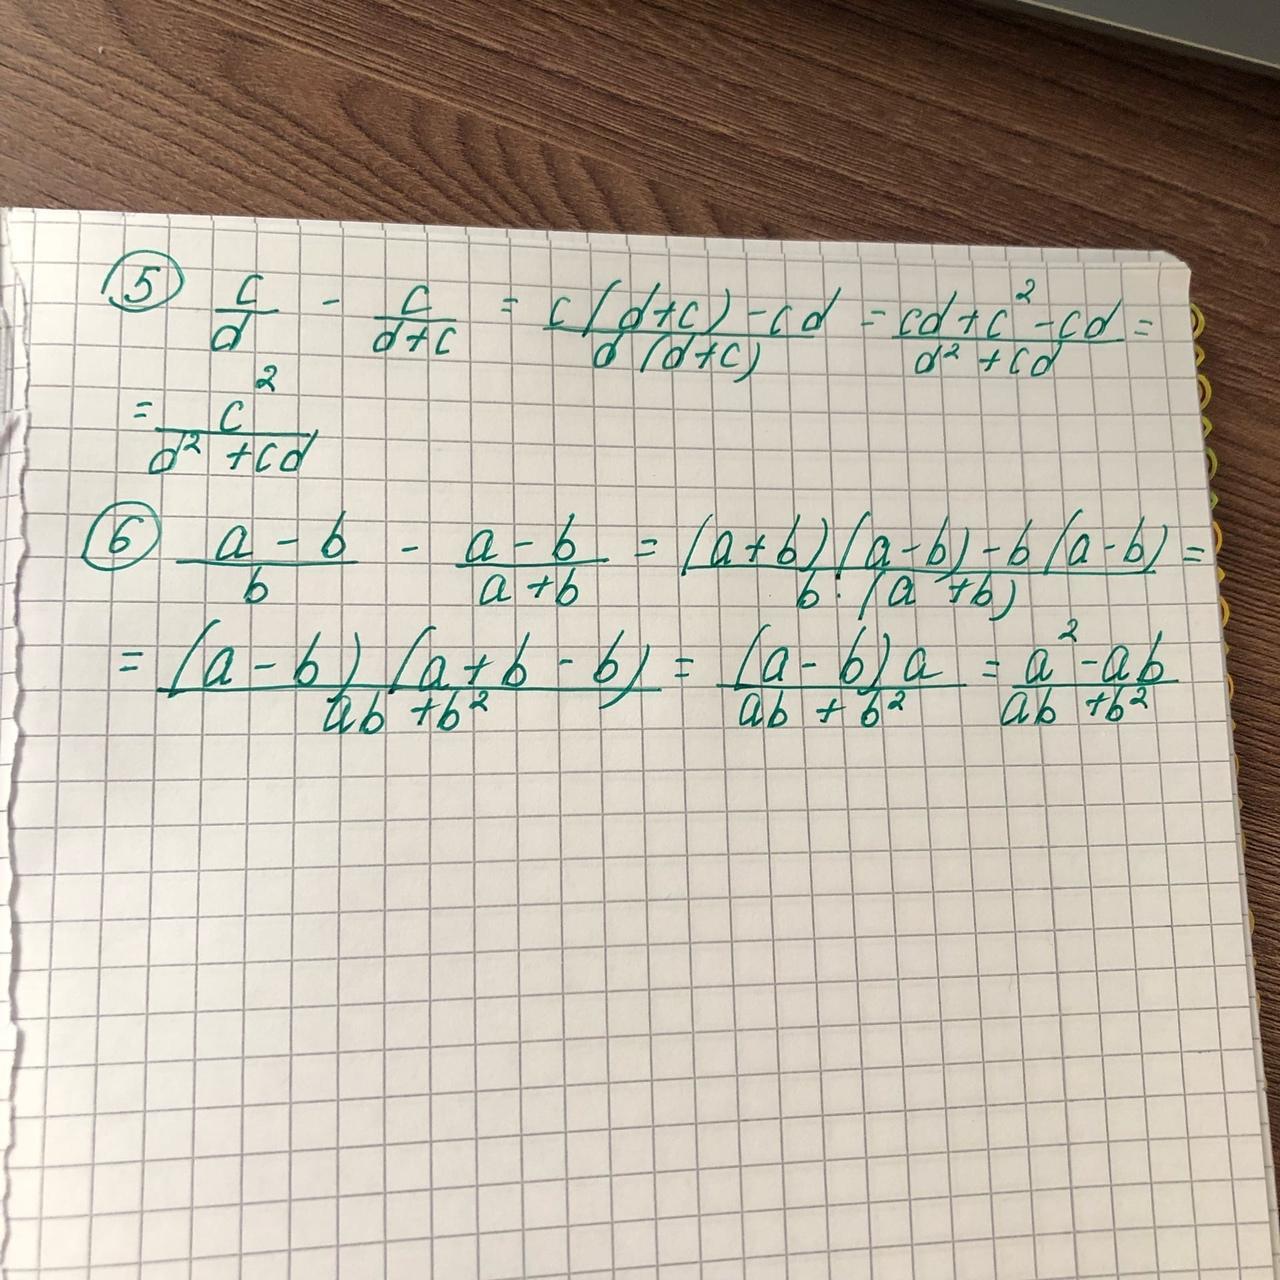 ⑤ c/d - c/(d+c) = (c(d+c)-cd)/(d(d+c)) = (cd+c²-cd)/(d²+cd) =
= c²/(d²+cd)
⑥ (a-b)/b - (a-b)/(a+b) = ((a+b)(a-b)-b(a-b))/(b·(a+b)) =
= ((a-b)(a+b-b))/(ab+b²) = ((a-b)a)/(ab+b²) = (a²-ab)/(ab+b²)